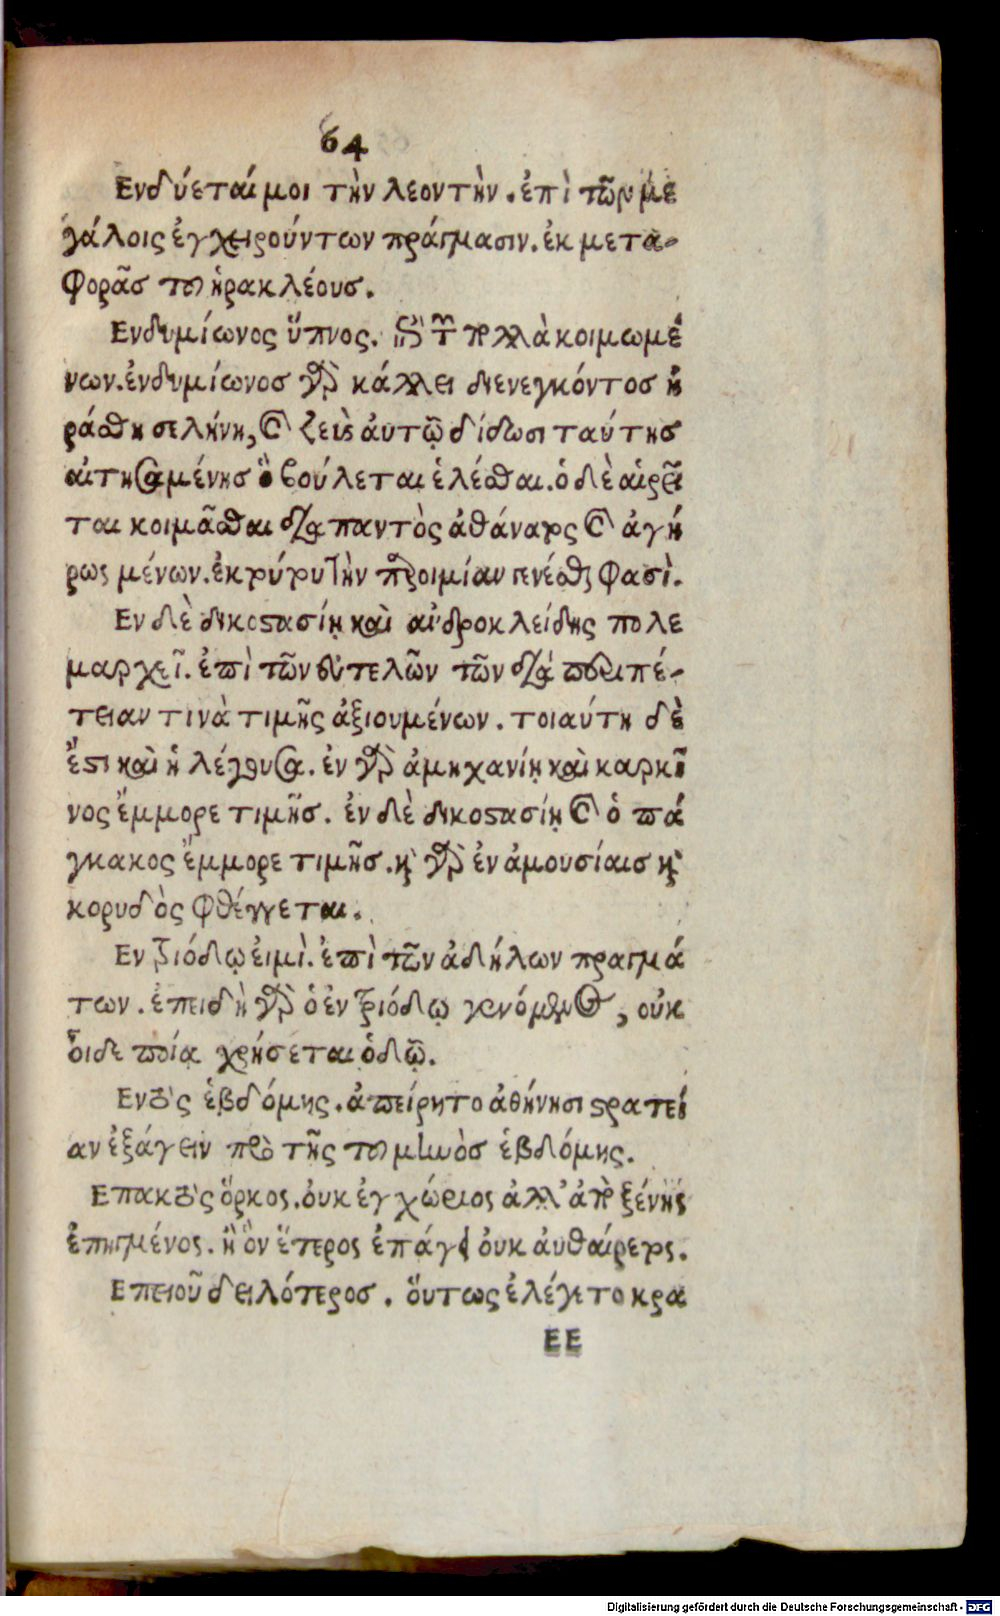 64
Ενδύεταί μοι τὴν λεοντὴν. ἐπὶ τῶν με
γάλοις ἐγχειρούντων πράγμασιν. ἐκ μετα-
φορᾶσ του ἡρακλέουσ.
Ενδυμίωνος ὕπνος. πολλὰ κοιμωμέ
νων. ἐνδυμίωνοσ γὰρ κάλλει διενεγκόντοσ ἠ
ράσθη σελήνη, καὶ ζεὺς ἀυτῷ δίδωσι ταύτησ
αἰτησαμένησ ὃ βούλεται ἑλέσθαι. ὁ δὲ αἱρεῖ
ται κοιμᾶσθαι διὰ παντὸς ἀθάνατος καὶ ἀγή
ρως μένων. ἐκ τούτου τὴν παροιμίαν γενέσθαι φασὶ.
Εν δὲ δικοστασίῃ καὶ ἀνδροκλείδης πολε
μαρχεῖ. ἐπὶ τῶν εὐτελῶν τῶν διὰ περιπέ-
τειαν τινὰ τιμῆς ἀξιουμένων. τοιαύτη δὲ
ἔστι καὶ ἡ λέγουσα. ἐν γὰρ ἀμηχανίῃ καὶ καρκῖ
νος ἔμμορε τιμῆσ. ἐν δὲ δικοστασίῃ καὶ ὁ πά
γκακος ἔμμορε τιμῆσ. καὶ γὰρ ἐν ἀμουσίαισ καὶ
κορυδὸς φθέγγεται.
Εν τριόδῳ ἐιμὶ. ἐπὶ τῶν ἀδήλων πραγμά
των. ἐπειδὴ γὰρ ὁ ἐν τριόδῳ γενόμενος, οὐκ
οἶδε ποία χρήσεται ὁδῷ.
Εντὸς ἑβδόμης. ἀπείρητο ἀθήνησι στρατεί
αν ἐξάγειν πρὸ τῆς του μηνὸσ ἑβδόμης.
Επακτὸς ὅρκος. ὀυκ ἐγχώριος ἀλλ' ἀπὸ ξένης
ἐπηγμένος. ἢ ὃν ἕτερος ἐπάγει ὀυκ ἀυθαίρετος.
Επειοῦ δειλότεροσ. ὅυτως ἐλέγετο κρα
EE
Digitalisierung gefördert durch die Deutsche Forschungsgemeinschaft - DFG